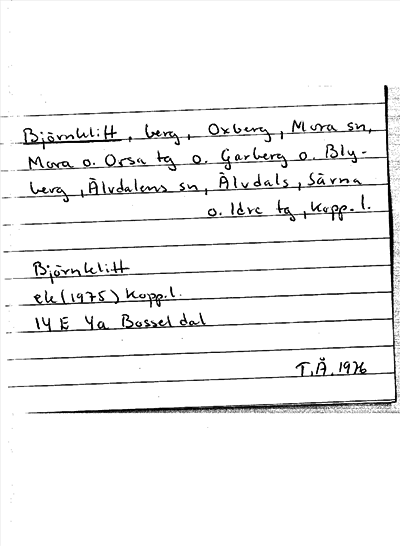 Björnklitt, berg, Oxberg, Mora sn,
Mora o. Orsa tg o. Garberg o. Bly-
berg, Älvdalens sn, Älvdals, Särna
o. Idre tg, Kopp. l.
Björnklitt
ek (1975) Kopp. l.
14 E 4a Bosseldal
T.Å. 1976